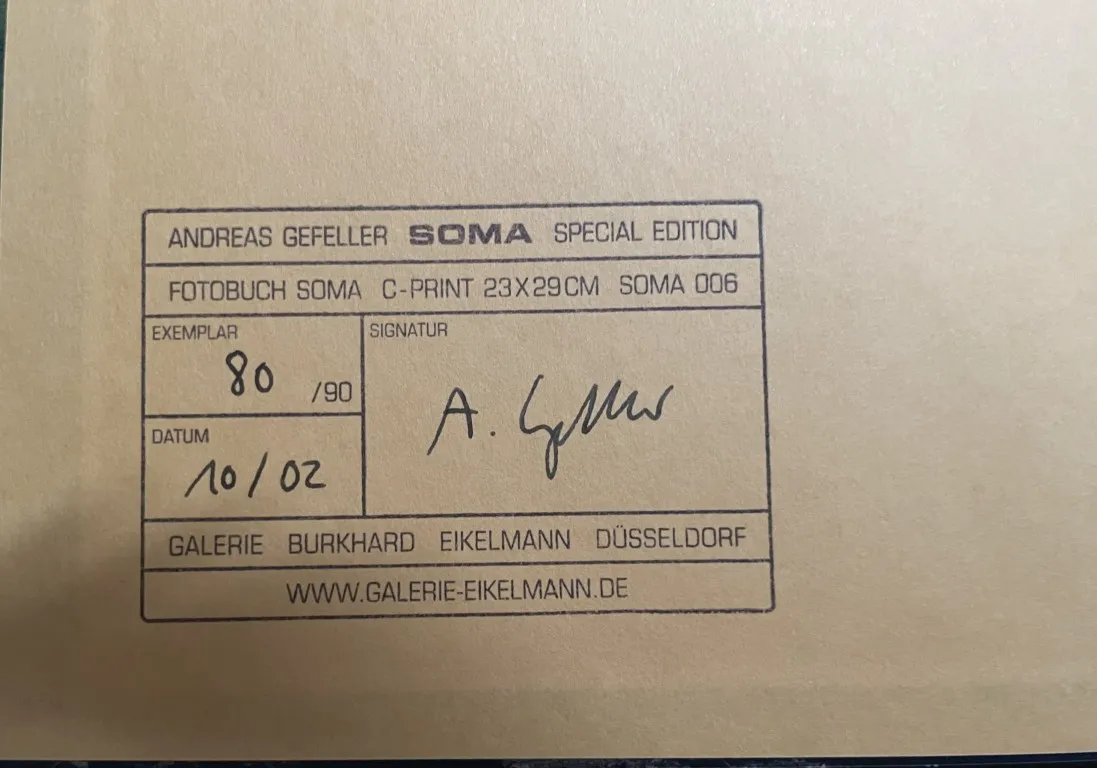 ANDREAS GEFELLER SOMA SPECIAL EDITION
FOTOBUCH SOMA C-PRINT 23X29CM SOMA 006
EXEMPLAR
80 /90
SIGNATUR
A. Gefeller
DATUM
10/02
GALERIE BURKHARD EIKELMANN DÜSSELDORF
WWW.GALERIE-EIKELMANN.DE